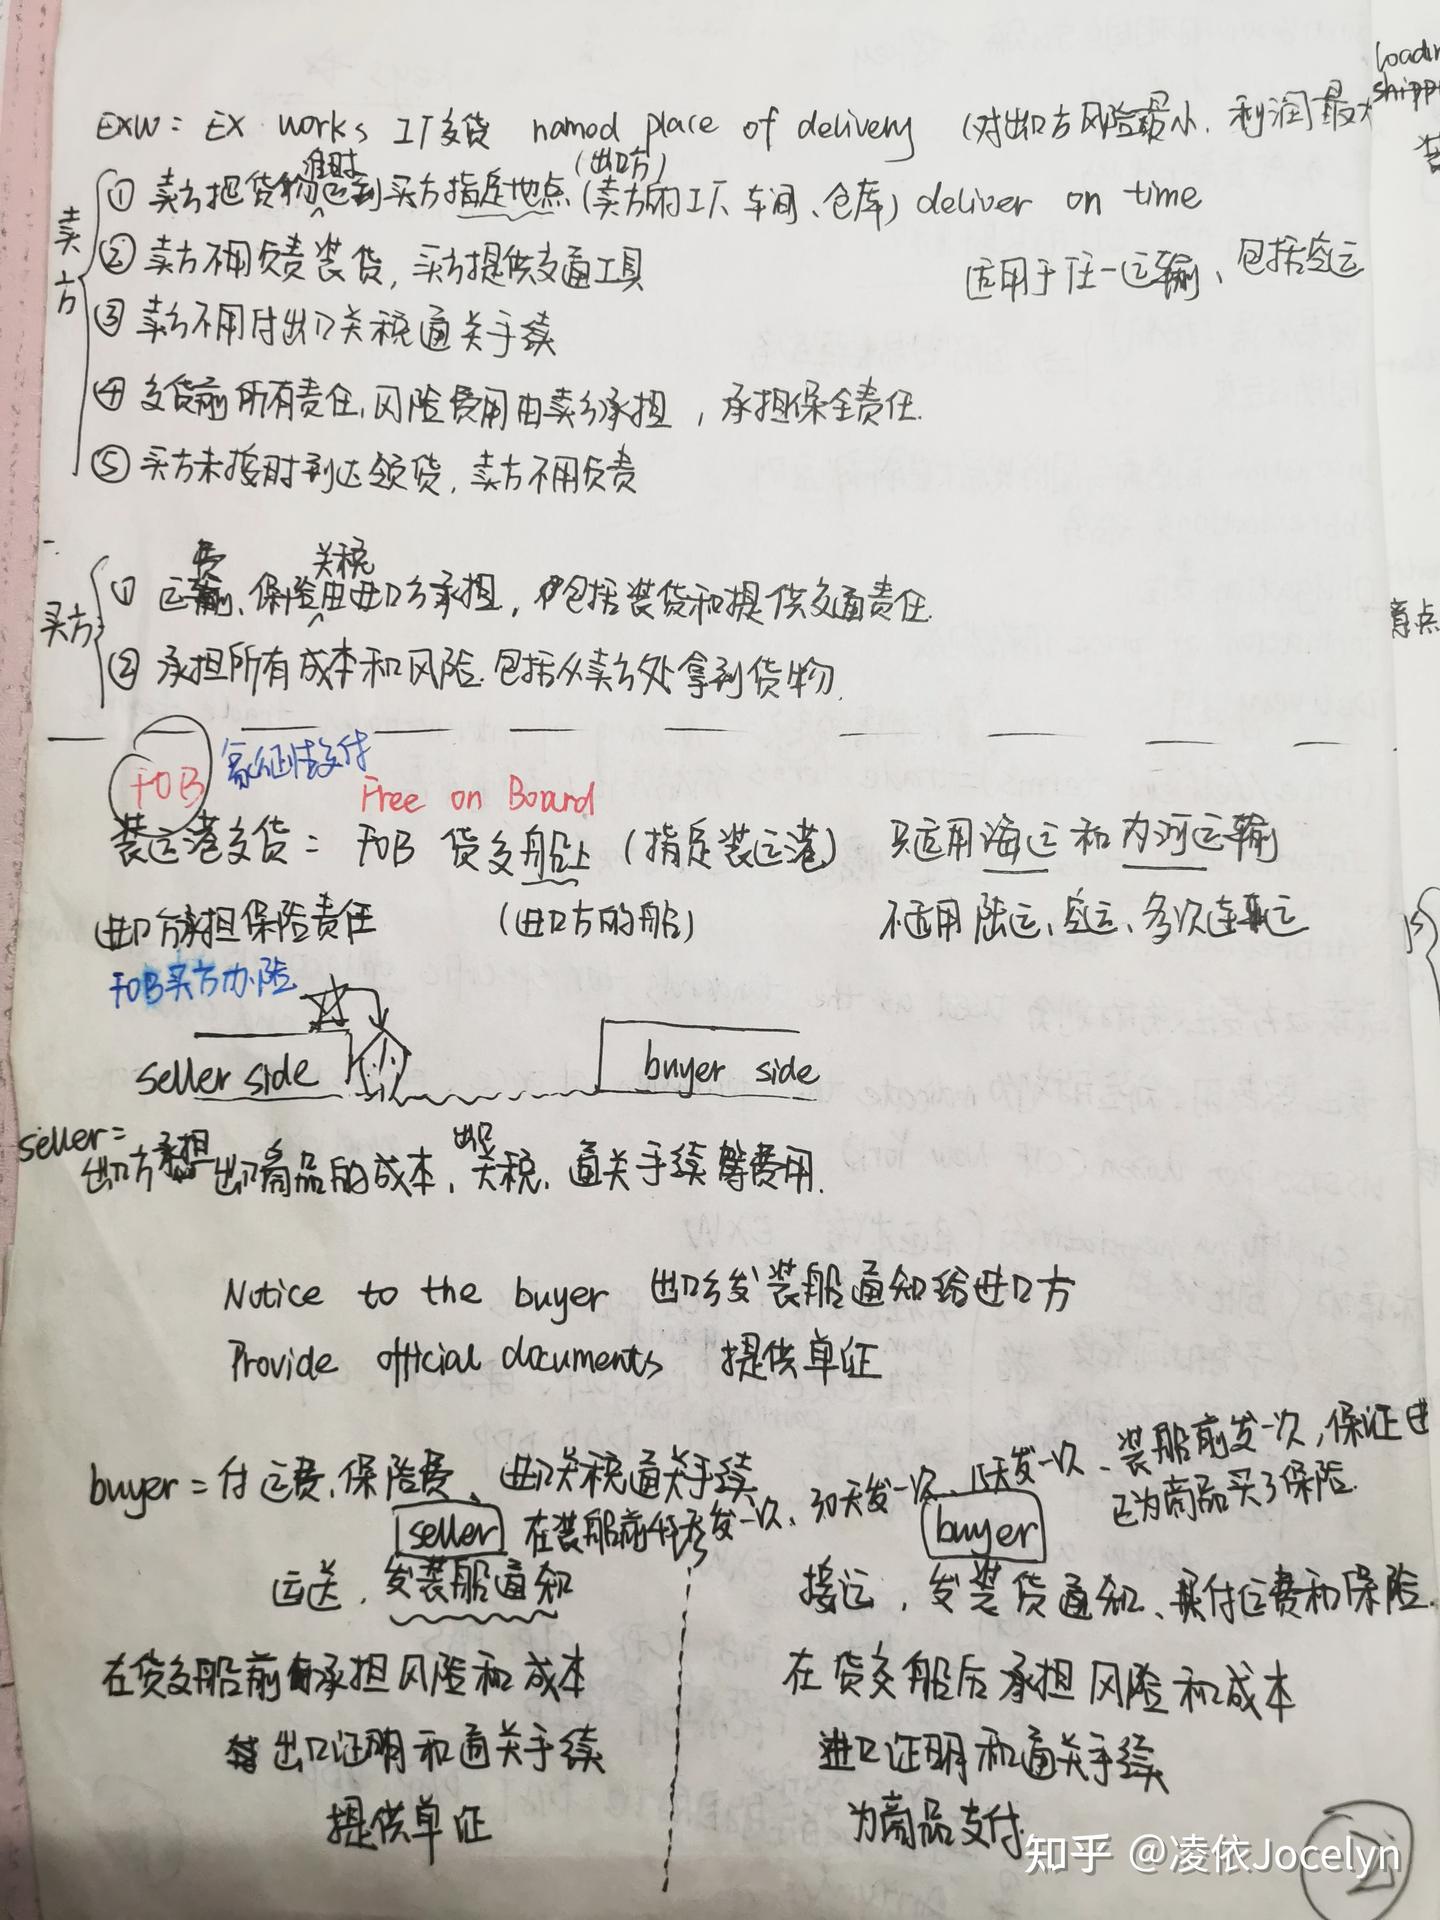 EXW: EX works 工厂交货 named place of delivery (对出口方风险最小. 利润最大
卖方
(出口方)
① 卖方把货物准时运到买方指定地点(卖方的工厂、车间、仓库) deliver on time
② 卖方不用负责装货, 买方提供交通工具
适用于任一运输、包括空运
③ 卖方不用付出口关税通关手续
④ 交货前所有责任,风险费用由卖方承担, 承担保全责任.
⑤ 买方未按时到达领货, 卖方不用负责
买方
① 运费、保险关税由进口方承担, 包括装货和提供交通责任.
② 承担所有成本和风险.包括从卖方处拿到货物.
FOB 象征性交付
Free on Board
装运港交货: FOB 货交船上 (指定装运港) 只适用海运和内河运输
进口方承担保险责任 (进口方的船) 不适用陆运、空运、多次连运
FOB买方办险
seller side buyer side
seller:
出口方承担出口商品的成本, 出口关税, 通关手续等费用.
Notice to the buyer 出口方发装船通知给进口方
Provide official documents 提供单证
buyer: 付运费、保险费、进口关税通关手续
seller 在装船前45天发一次、30天发一次、15天发一次、装船前发一次,保证进
已为商品买了保险.
buyer
运送, 发装船通知
接运, 发装货通知、付运费和保险.
在货交船前承担风险和成本
在货交船后承担风险和成本
出口证明和通关手续
进口证明和通关手续
提供单证
为商品支付
知乎 @凌依Jocelyn
2
loadin
shipp
装
盲点